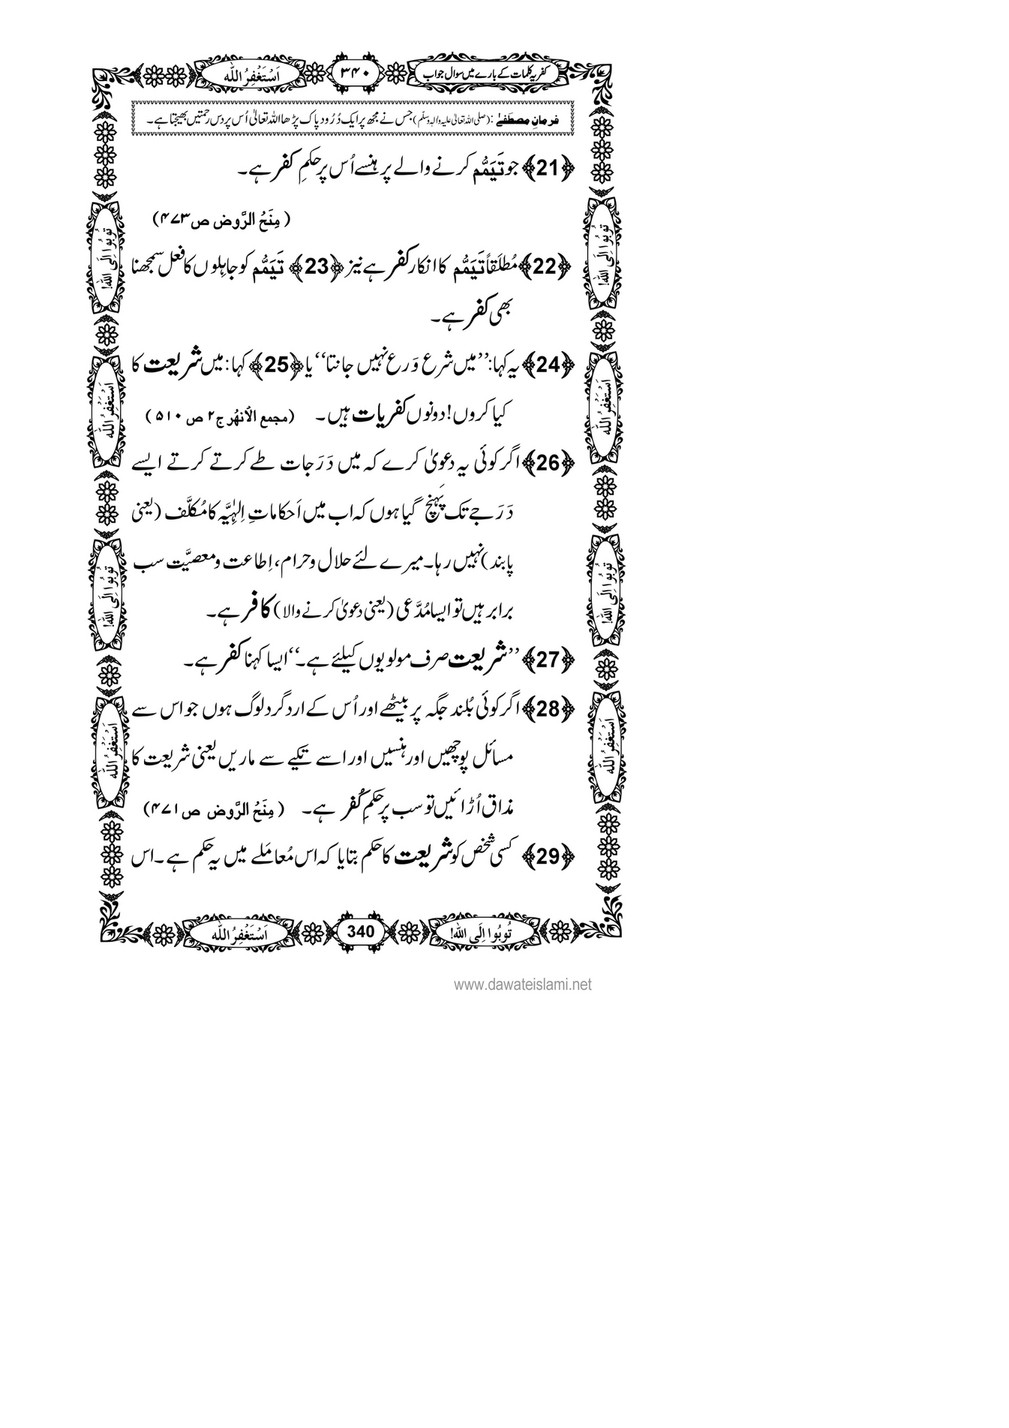 کفریہ کلمات کے بارے میں سوال جواب
۳۴۰
اَسْتَغْفِرُ اللہ
فرمانِ مصطفےٰ : (صلی اللہ تعالیٰ علیہ والہ وسلّم) جس نے مجھ پر ایک دُرُود پاک پڑھا اللہ تعالیٰ اُس پر دس رحمتیں بھیجتا ہے۔
﴿21﴾ جو تَیَمُّم کرنے والے پر ہنسے اُس پر حکمِ کفر ہے۔
(مِنَحُ الرَّوض ص۴۷۳)
﴿22﴾ مُطلَقاً تَیَمُّم کا انکار کفر ہے نیز ﴿23﴾ تَیَمُّم کو جاہلوں کا فعل سمجھنا
بھی کفر ہے۔
﴿24﴾ یہ کہا: ’’میں شرع وَرع نہیں جانتا‘‘ یا ﴿25﴾ کہا: میں شریعت کا
کیا کروں! دونوں کفریات ہیں۔ (مجمع الأنهُر ج۲ ص ۵۱۰)
﴿26﴾ اگر کوئی یہ دعویٰ کرے کہ میں دَرَجات طے کرتے کرتے ایسے
دَرَجے تک پَہنچ گیا ہوں کہ اب میں اَحکاماتِ اِلٰہِیَّہ کا مُکلَّف (یعنی
پابند) نہیں رہا۔ میرے لئے حلال و حرام، اِطاعت و معصیَّت سب
برابر ہیں تو ایسا مُدَّعی (یعنی دعویٰ کرنے والا) کافر ہے۔
﴿27﴾ ’’شریعت صرف مولویوں کیلئے ہے۔‘‘ ایسا کہنا کفر ہے۔
﴿28﴾ اگر کوئی بُلند جگہ پر بیٹھے اور اُس کے ارد گرد لوگ ہوں جو اس سے
مسائل پوچھیں اور ہنسیں اور اسے تکیے سے ماریں یعنی شریعت کا
مذاق اُڑائیں تو سب پر حکمِ کُفر ہے۔ (مِنَحُ الرَّوض ص۴۷۱)
﴿29﴾ کسی شخص کو شریعت کا حکم بتایا کہ اس مُعاملے میں یہ حکم ہے۔ اس
تُوبُوا اِلَی اللہ!
اَسْتَغْفِرُ اللہ
تُوبُوا اِلَی اللہ!
اَسْتَغْفِرُ اللہ
تُوبُوا اِلَی اللہ!
اَسْتَغْفِرُ اللہ
تُوبُوا اِلَی اللہ!
اَسْتَغْفِرُ اللہ
تُوبُوا اِلَی اللہ!
340
اَسْتَغْفِرُ اللہ
www.dawateislami.net